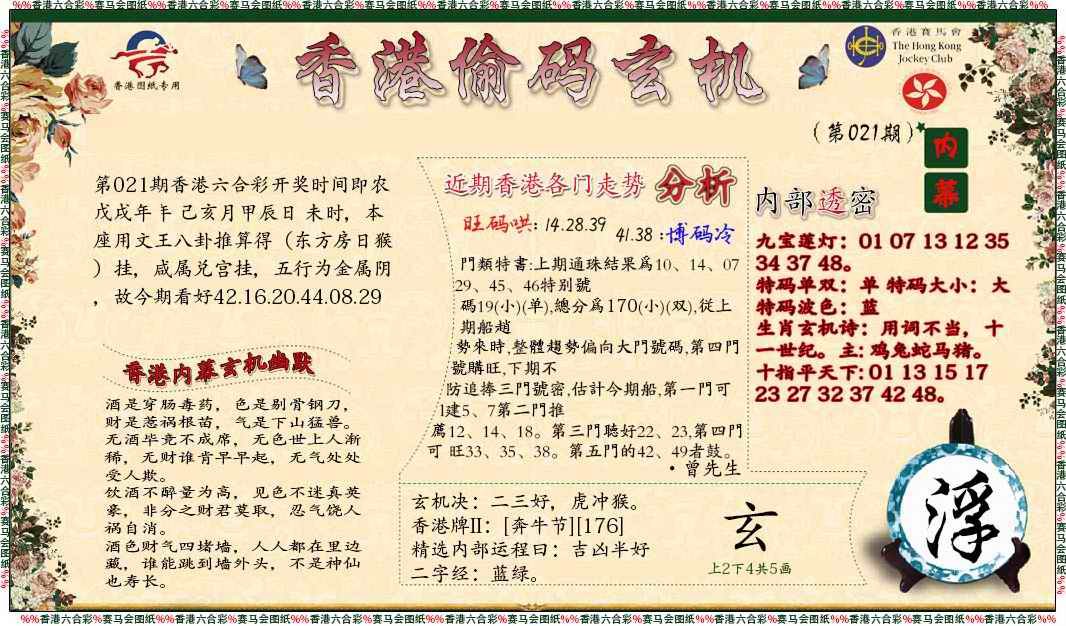 %%香港六合彩%赛马会图纸%%香港六合彩%赛马会图纸%%香港六合彩%赛马会图纸%%香港六合彩%赛马会图纸%%香港六合彩%赛马会图纸%%香港六合彩%赛马会图纸%%香港六合彩%%
香港图纸专用
香港偷码玄机
香港賽馬會
The Hong Kong
Jockey Club
(第021期)
内
幕
第021期香港六合彩开奖时间即农
戊戌年 己亥月甲辰日 未时，本
座用文王八卦推算得（东方房日猴
）挂，咸属兑宫挂，五行为金属阴
，故今期看好42.16.20.44.08.29
香港内幕玄机幽默
酒是穿肠毒药，色是剔骨钢刀，
财是惹祸根苗，气是下山猛兽。
无酒毕竟不成席，无色世上人渐
稀，无财谁肯早早起，无气处处
受人欺。
饮酒不醉量为高，见色不迷真英
豪，非分之财君莫取，忍气饶人
祸自消。
酒色财气四堵墙，人人都在里边
藏，谁能跳到墙外头，不是神仙
也寿长。
近期香港各门走势 分析
旺码哄: 14.28.39
41.38 :博码冷
門類特書:上期通珠結果爲10、14、07
29、45、46特别號
碼19(小)(单),總分爲170(小)(双),從上
期船趙
勢來時,整體趨勢偏向大門號碼,第四門
號購旺,下期不
防追捧三門號密,估计今期船,第一門可
1建5、7第二門推
薦12、14、18。第三門聴好22、23,第四門
可 旺33、35、38。第五門的42、49者鼓。
·曾先生
内部透密
九宝莲灯：01 07 13 12 35
34 37 48。
特码单双：单 特码大小：大
特码波色：蓝
生肖玄机诗：用词不当，十
一世纪。主：鸡兔蛇马猪。
十指平天下: 01 13 15 17
23 27 32 37 42 48。
玄机决：二三好，虎冲猴。
香港牌II：[奔牛节][176]
精选内部运程曰：吉凶半好
二字经：蓝绿。
玄
上2下4共5画
浮
%%香港六合彩%赛马会图纸%%香港六合彩%赛马会图纸%%香港六合彩%赛马会图纸%%香港六合彩%赛马会图纸%%香港六合彩%赛马会图纸%%香港六合彩%赛马会图纸%%香港六合彩%%